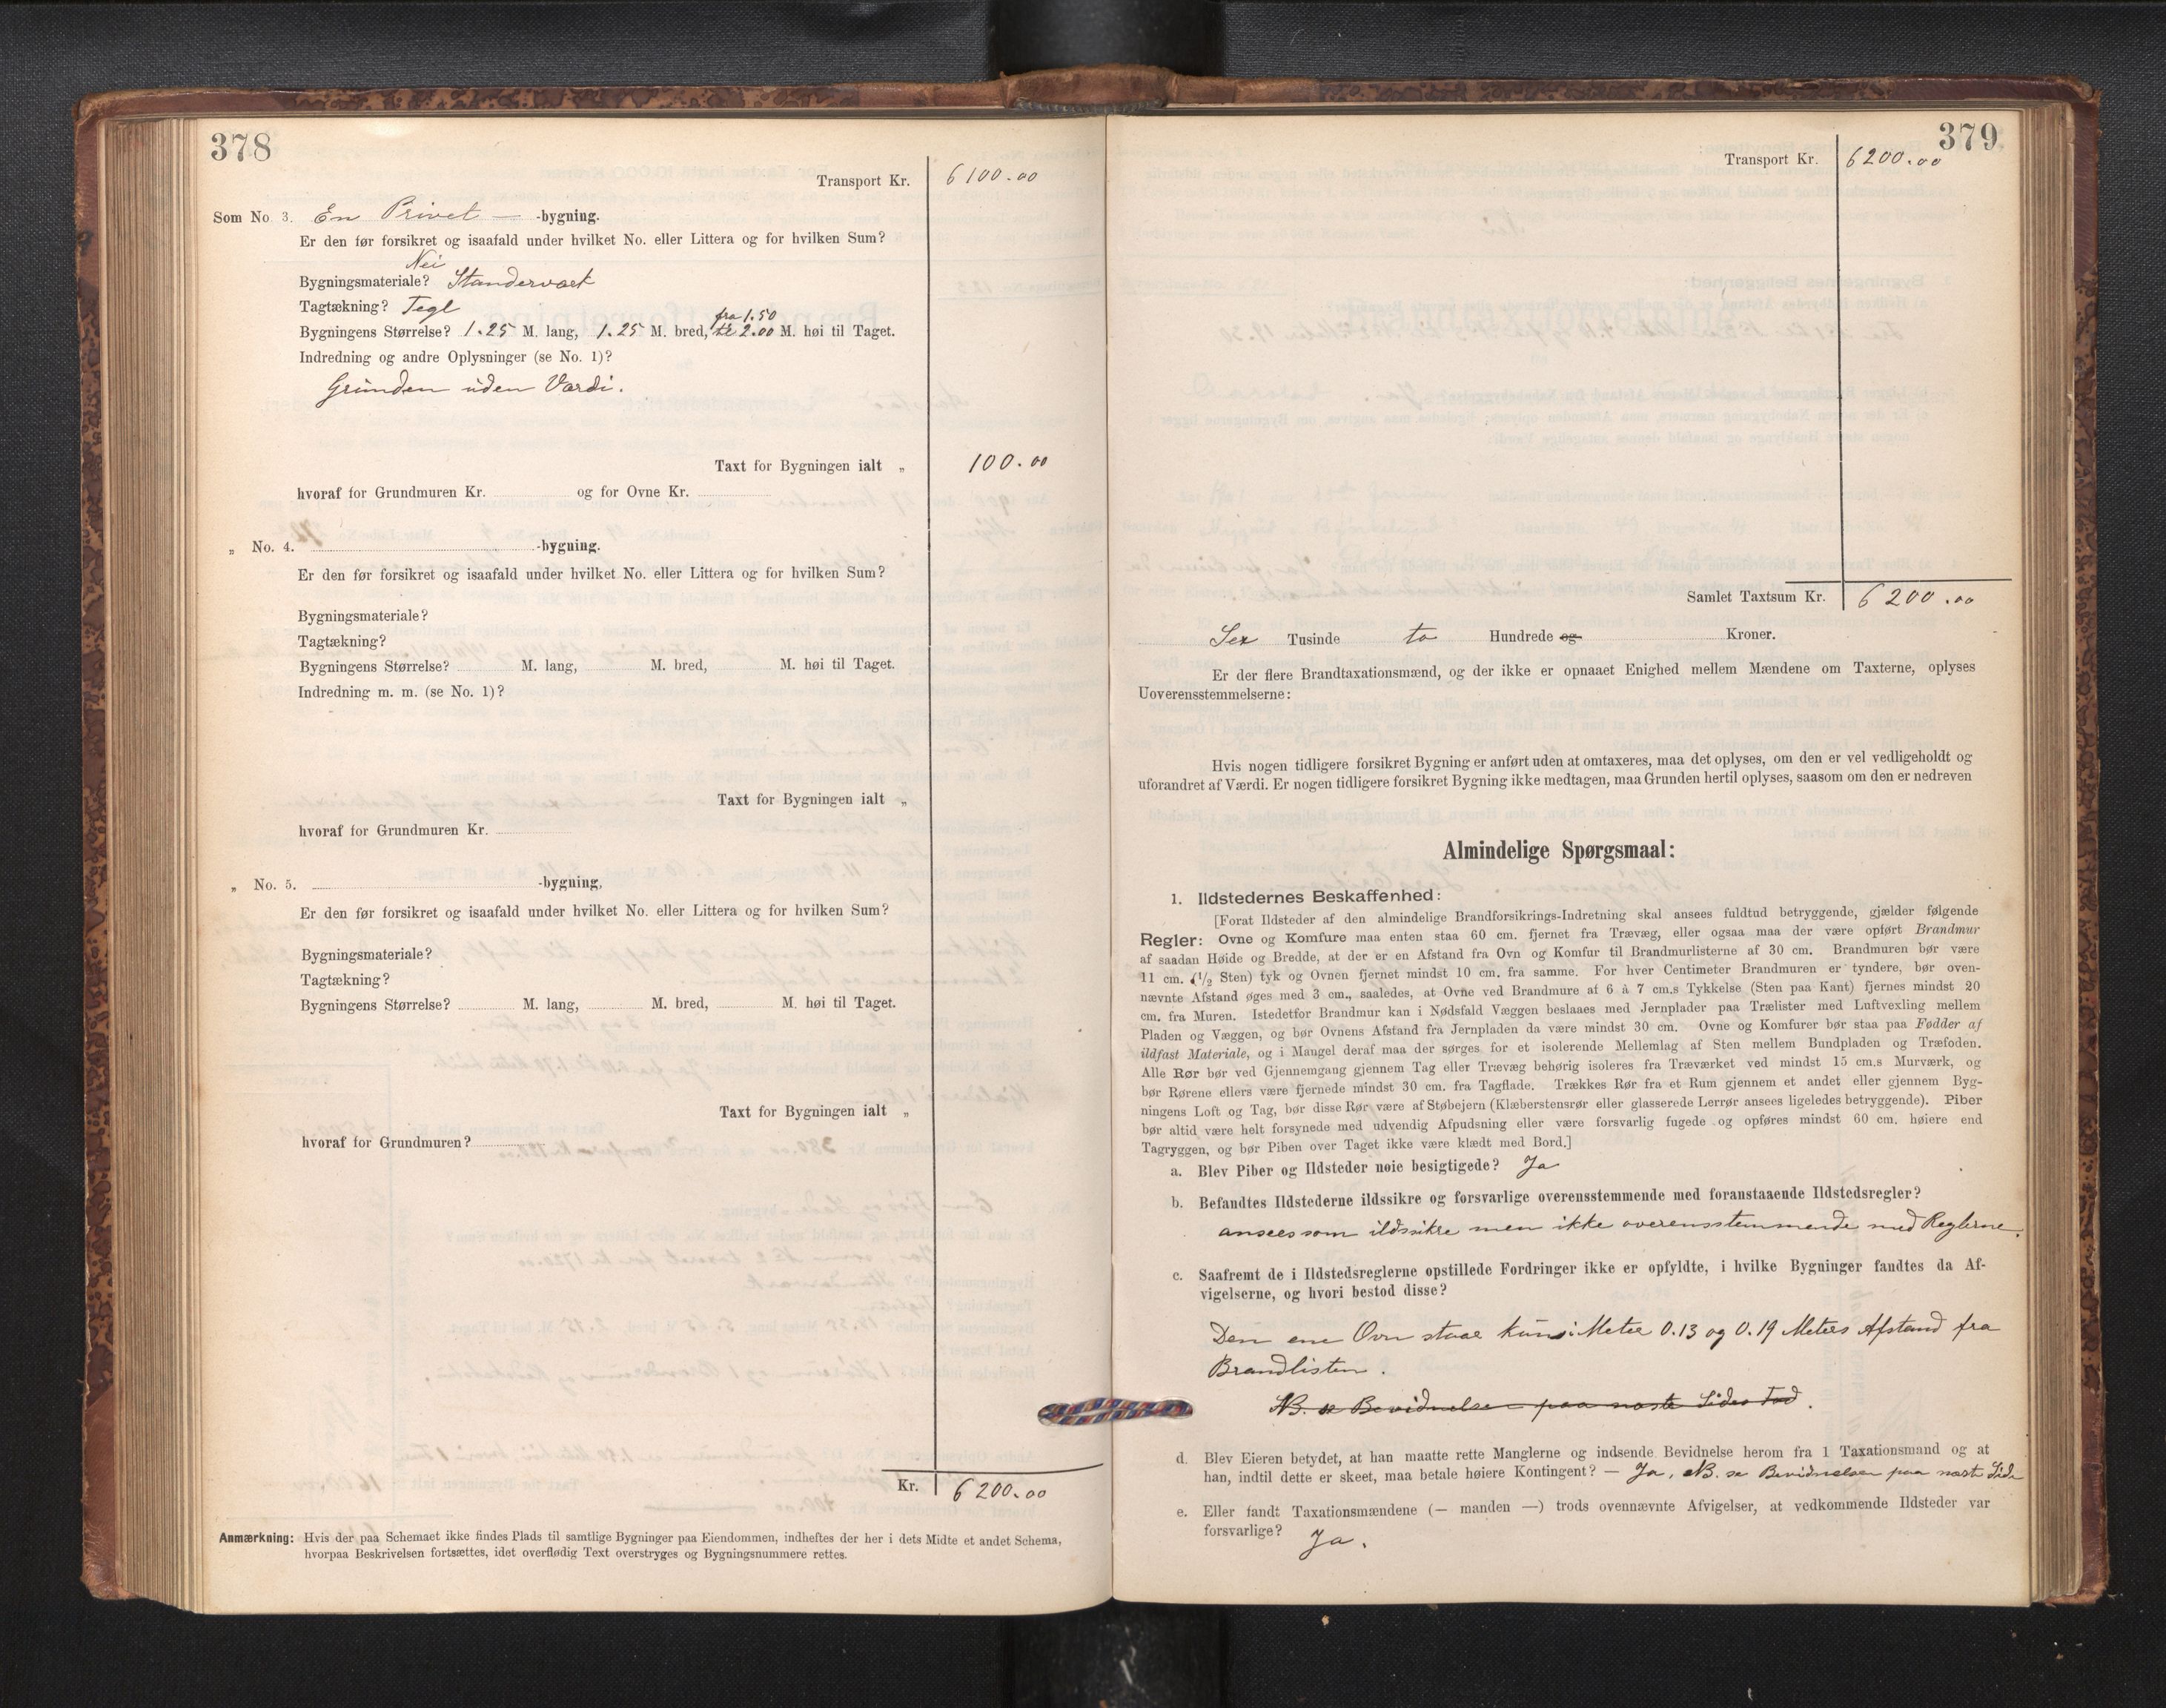 378
Transport Kr. 6100.00
Som No. 3. En Privet — -bygning.
Er den før forsikret og isaafald under hvilket No. eller Littera og for hvilken Sum?
Nei
Bygningsmateriale? Standerværk
Tagtækning? Tegl
fra 1.50
Bygningens Størrelse? 1.25 M. lang, 1.25 M. bred, til 2.00 M. høi til Taget.
Indredning og andre Oplysninger (se No. 1)?
Grunden uden Værdi.
Taxt for Bygningen ialt „ 100.00
hvoraf for Grundmuren Kr. og for Ovne Kr.
„ No. 4. -bygning.
Er den før forsikret og isaafald under hvilket No. eller Littera og for hvilken Sum?
Bygningsmateriale?
Tagtækning?
Bygningens Størrelse? M. lang, M. bred, M. høi til Taget.
Indredning m. m. (se No. 1)?
Taxt for Bygningen ialt „
hvoraf for Grundmuren Kr.
„ No. 5. -bygning,
Er den før forsikret og isaafald under hvilket No. eller Littera og for hvilken Sum?
Bygningsmateriale?
Tagtækning?
Bygningens Størrelse? M. lang, M. bred, M. høi til Taget.
Taxt for Bygningen ialt „
hvoraf for Grundmuren?
Kr. 6200.00
Anmærkning: Hvis der paa Schemaet ikke findes Plads til samtlige Bygninger paa Eiendommen, indheftes der her i dets Midte et andet Schema,
hvorpaa Beskrivelsen fortsættes, idet overflødig Text overstryges og Bygningsnummere rettes.
379
Transport Kr. 6200.00
Samlet Taxtsum Kr. 6200.00
Sex Tusinde to Hundrede og Kroner.
Er der flere Brandtaxationsmænd, og der ikke er opnaaet Enighed mellem Mændene om Taxterne, oplyses
Uoverensstemmelserne:
Hvis nogen tidligere forsikret Bygning er anført uden at omtaxeres, maa det oplyses, om den er vel vedligeholdt og
uforandret af Værdi. Er nogen tidligere forsikret Bygning ikke medtagen, maa Grunden hertil oplyses, saasom om den er nedreven
Almindelige Spørgsmaal:
1. Ildstedernes Beskaffenhed:
[Forat Ildsteder af den almindelige Brandforsikrings-Indretning skal ansees fuldtud betryggende, gjælder følgende
Regler: Ovne og Komfure maa enten staa 60 cm. fjernet fra Trævæg, eller ogsaa maa der være opført Brandmur
af saadan Høide og Bredde, at der er en Afstand fra Ovn og Komfur til Brandmurlisterne af 30 cm. Brandmuren bør være
11 cm. (1/2 Sten) tyk og Ovnen fjernet mindst 10 cm. fra samme. For hver Centimeter Brandmuren er tyndere, bør oven-
nævnte Afstand øges med 3 cm., saaledes, at Ovne ved Brandmure af 6 à 7 cm.s Tykkelse (Sten paa Kant) fjernes mindst 20
cm. fra Muren. Istedetfor Brandmur kan i Nødsfald Væggen beslaaes med Jernplader paa Trælister med Luftvexling mellem
Pladen og Væggen, og bør Ovnens Afstand fra Jernpladen da være mindst 30 cm. Ovne og Komfurer bør staa paa Fødder af
ildfast Materiale, og i Mangel deraf maa der sørges for et isolerende Mellemlag af Sten mellem Bundpladen og Træfoden.
Alle Rør bør ved Gjennemgang gjennem Tag eller Trævæg behørig isoleres fra Træværket ved mindst 15 cm.s Murværk, og
bør Rørene ellers være fjernede mindst 30 cm. fra Tagflade. Trækkes Rør fra et Rum gjennem et andet eller gjennem Byg-
ningens Loft og Tag, bør disse Rør være af Støbejern (Klæberstensrør eller glasserede Lerrør ansees ligeledes betryggende). Piber
bør altid være helt forsynede med udvendig Afpudsning eller være forsvarlig fugede og opføres mindst 60 cm. høiere end
Tagryggen, og bør Piben over Taget ikke være klædt med Bord.]
a. Blev Piber og Ildsteder nøie besigtigede? Ja
b. Befandtes Ildstederne ildssikre og forsvarlige overensstemmende med foranstaaende Ildstedsregler?
ansees som ildssikre men ikke overensstemmende med Reglerne.
c. Saafremt de i Ildstedsreglerne opstillede Fordringer ikke er opfyldte, i hvilke Bygninger fandtes da Af-
vigelserne, og hvori bestod disse?
Den ene Ovn staar kun i Meter 0.13 og 0.19 Meters Afstand fra
Brandlisten.
NB. se Bevidnelsen paa næste Sides Fod.
d. Blev Eieren betydet, at han maatte rette Manglerne og indsende Bevidnelse herom fra 1 Taxationsmand og at
han, indtil dette er skeet, maa betale høiere Kontingent? — Ja, NB. se Bevidnelsen paa næst Side
e. Eller fandt Taxationsmændene (— manden —) trods ovennævnte Afvigelser, at vedkommende Ildsteder var
forsvarlige? Ja.